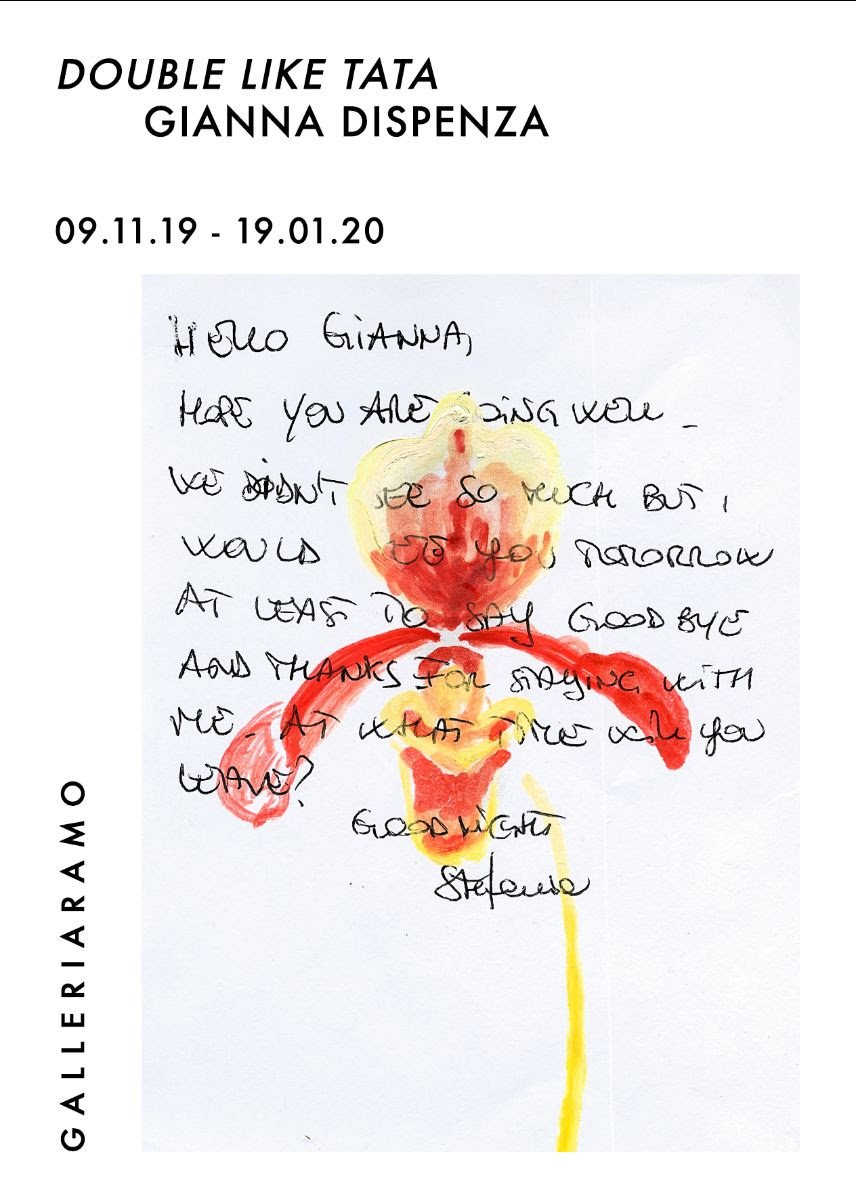 DOUBLE LIKE TATA
GIANNA DISPENZA
09.11.19 - 19.01.20
HELLO GIANNA,
HOPE YOU ARE DOING WELL -
WE DIDN'T SEE SO MUCH BUT I
WOULD SEE YOU TOMORROW
AT LEAST TO SAY GOODBYE
AND THANKS FOR STAYING WITH
ME. AT WHAT TIME WILL YOU
LEAVE?
GOODNIGHT
Stefania
GALLERIARAMO